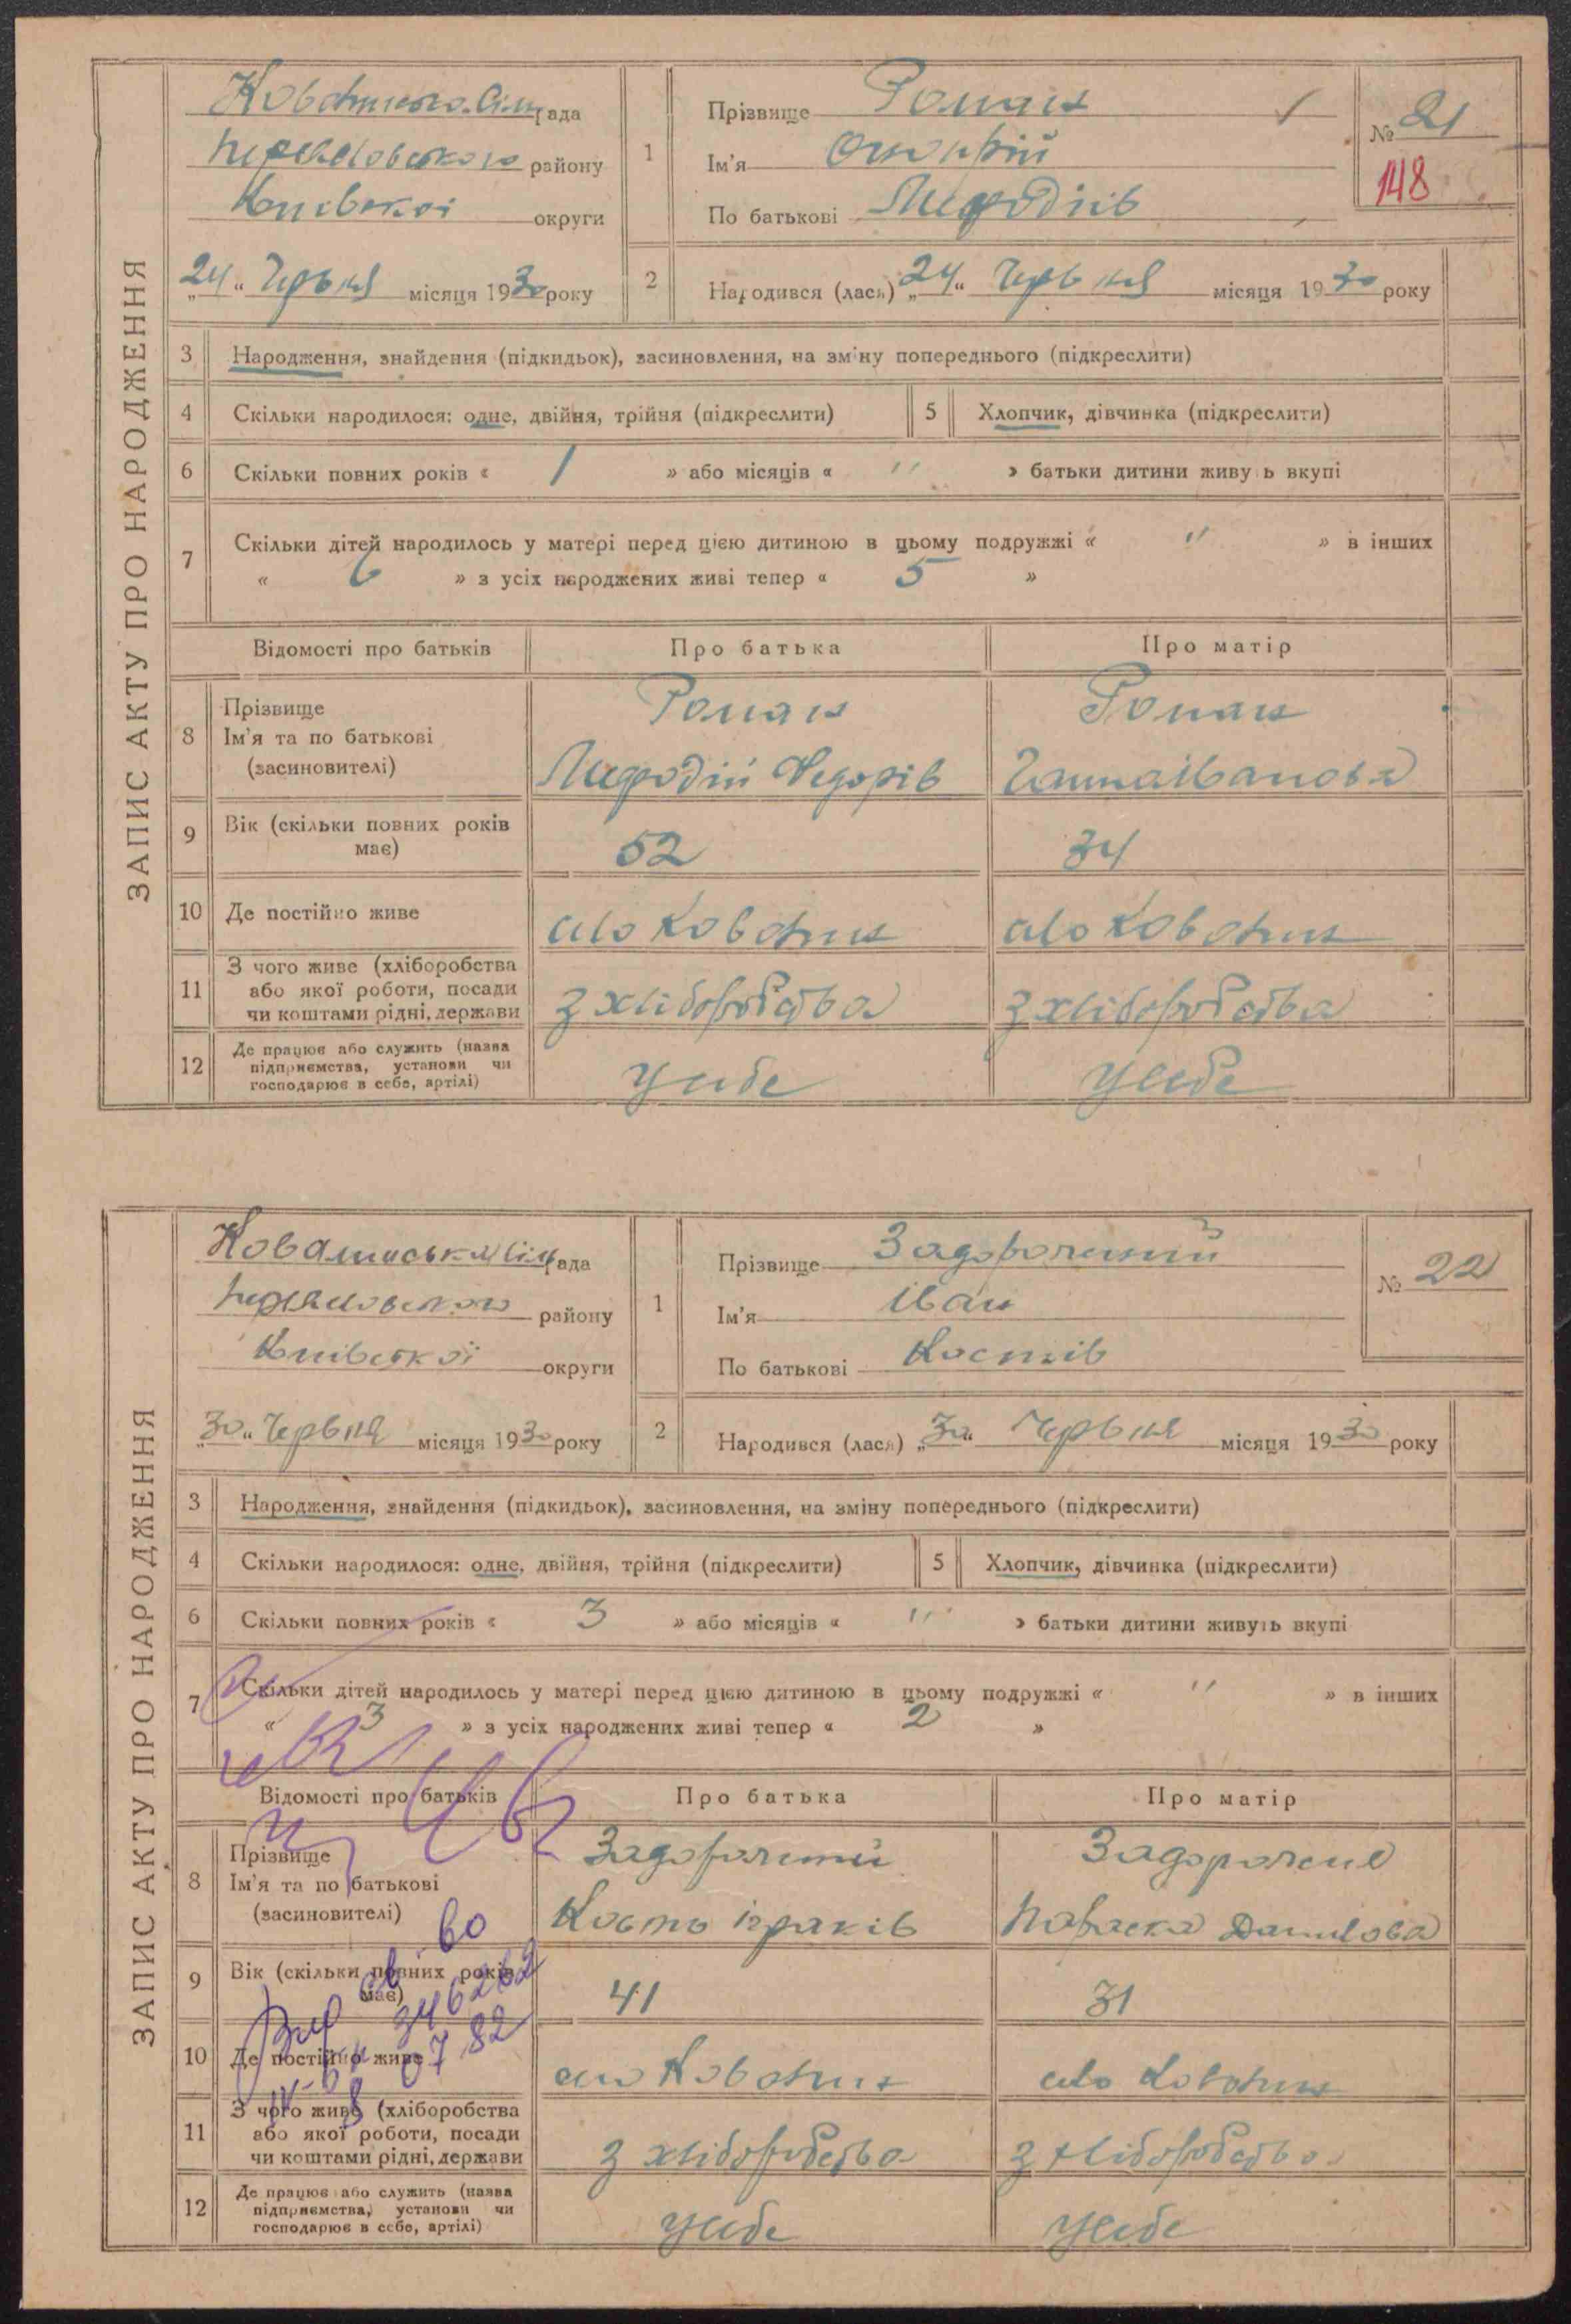 ЗАПИС АКТУ ПРО НАРОДЖЕННЯ
рада
району
Київської округи
„24“ Червня місяця 1930 року
1 Прізвище Роман
Ім'я Онопрій
По батькові Мефодіїв
№ 21
148
2 Народився (лася) „24“ Червня місяця 1930 року
3 Народження, знайдення (підкидьок), засиновлення, на зміну попереднього (підкреслити)
4 Скільки народилося: одне, двійня, трійня (підкреслити) 5 Хлопчик, дівчинка (підкреслити)
6 Скільки повних років « 1 » або місяців « " » батьки дитини живуть вкупі
7 Скільки дітей народилось у матері перед цією дитиною в цьому подружжі « " » в інших
« 6 » з усіх народжених живі тепер « 5 »
Відомості про батьків Про батька Про матір
8 Прізвище
Ім'я та по батькові
(засиновителі)
Роман
Мефодій Федорів
Роман
Ганна Іванова
9 Вік (скільки повних років має) 52 34
10 Де постійно живе село Ковалин село Ковалин
11 З чого живе (хліборобства
або якої роботи, посади
чи коштами рідні, держави
з хліборобства з хліборобства
12 Де працює або служить (назва
підприємства, установи чи
господарює в себе, артілі)
у себе у себе
ЗАПИС АКТУ ПРО НАРОДЖЕННЯ
рада
району
Київської округи
„30“ Червня місяця 1930 року
1 Прізвище Задорожний
Ім'я Іван
По батькові Костів
№ 22
2 Народився (лася) „30“ Червня місяця 1930 року
3 Народження, знайдення (підкидьок), засиновлення, на зміну попереднього (підкреслити)
4 Скільки народилося: одне, двійня, трійня (підкреслити) 5 Хлопчик, дівчинка (підкреслити)
6 Скільки повних років « 3 » або місяців « " » батьки дитини живуть вкупі
7 Скільки дітей народилось у матері перед цією дитиною в цьому подружжі « " » в інших
« 3 » з усіх народжених живі тепер « 2 »
Відомості про батьків Про батька Про матір
8 Прізвище
Ім'я та по батькові
(засиновителі)
Задорожний
Кость
Задорожня
Параска Данилова
9 Вік (скільки повних років має) 41 31
10 Де постійно живе село Ковалин село Ковалин
11 З чого живе (хліборобства
або якої роботи, посади
чи коштами рідні, держави
з хліборобства з хліборобства
12 Де працює або служить (назва
підприємства, установи чи
господарює в себе, артілі)
у себе у себе